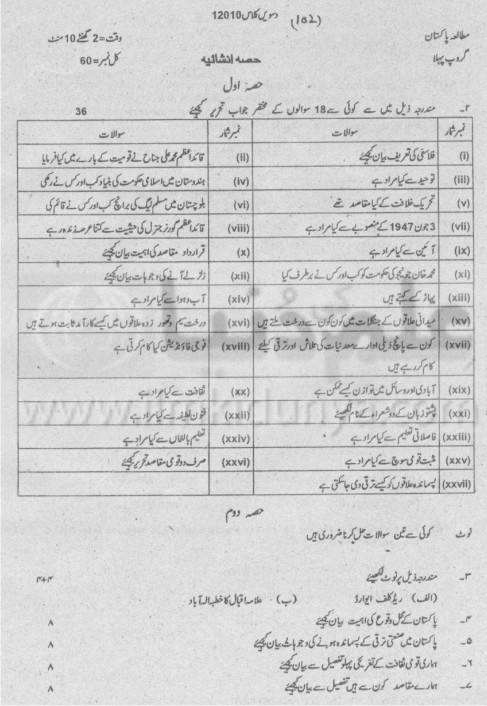 (102) دسویں کلاس 12010
مطالعہ پاکستان وقت=2 گھنٹے 10 منٹ
گروپ پہلا حصہ انشائیہ کل نمبر=60
حصہ اول
۲۔ مندرجہ ذیل میں سے کوئی سے 18 سوالوں کے مختصر جواب تحریر کیجئے 36
نمبر شمار سوالات نمبر شمار سوالات
(i) فلاسفی کی تعریف بیان کیجئے (ii) قائد اعظم محمد علی جناح نے قومیت کے بارے میں کیا فرمایا
(iii) توحید سے کیا مراد ہے (iv) ہندوستان میں اسلامی حکومت کی بنیاد کب اور کس نے رکھی
(v) تحریک خلافت کے کیا مقاصد تھے (vi) بلوچستان میں مسلم لیگ کی برانچ کب اور کس نے قائم کی
(vii) 3 جون 1947 کے منصوبے سے کیا مراد ہے (viii) قائد اعظم گورنر جنرل کی حیثیت سے کتنا عرصہ زندہ رہے
(ix) آئین سے کیا مراد ہے (x) قرارداد مقاصد کی اہمیت بیان کیجئے
(xi) محمد خان جونیجو کی حکومت کو کب اور کس نے برطرف کیا (xii) زلزلے آنے کی وجوہات بیان کیجئے
(xiii) پہاڑ کسے کہتے ہیں (xiv) آب و ہوا سے کیا مراد ہے
(xv) میدانی علاقوں کے جنگلات میں کون کون سے درخت ملتے ہیں (xvi) درخت سیم و تھور زدہ علاقوں میں کیسے کارآمد ثابت ہوتے ہیں
(xvii) کون سے پانچ ذیلی ادارے معدنیات کی تلاش اور ترقی کیلئے (xviii) فوجی فاؤنڈیشن کیا کام کرتی ہے
کام کر رہے ہیں
(xix) آبادی اور وسائل میں توازن کیسے ممکن ہے (xx) ثقافت سے کیا مراد ہے
(xxi) پشتو زبان کے دو شعراء کے نام لکھئے (xxii) فنون لطیفہ سے کیا مراد ہے
(xxiii) فاصلاتی تعلیم سے کیا مراد ہے (xxiv) تعلیم بالغاں سے کیا مراد ہے
(xxv) مثبت قومی سوچ سے کیا مراد ہے (xxvi) صرف دو قومی مقاصد تحریر کیجئے
(xxvii) پسماندہ علاقوں کو کیسے ترقی دی جا سکتی ہے
حصہ دوم
نوٹ کوئی سے تین سوالات حل کرنا ضروری ہیں
۳۔ مندرجہ ذیل پر نوٹ لکھئے ۴+۴
(الف) ریڈ کلف ایوارڈ (ب) علامہ اقبال کا خطبہ الہ آباد
۴۔ پاکستان کے محل وقوع کی اہمیت بیان کیجئے ۸
۵۔ پاکستان میں صنعتی ترقی کے پسماندہ ہونے کی وجوہات بیان کیجئے ۸
۶۔ ہماری قومی ثقافت کے تفریحی پہلو تفصیل سے بیان کیجئے ۸
۷۔ ہمارے مقاصد کون سے ہیں تفصیل سے بیان کیجئے ۸